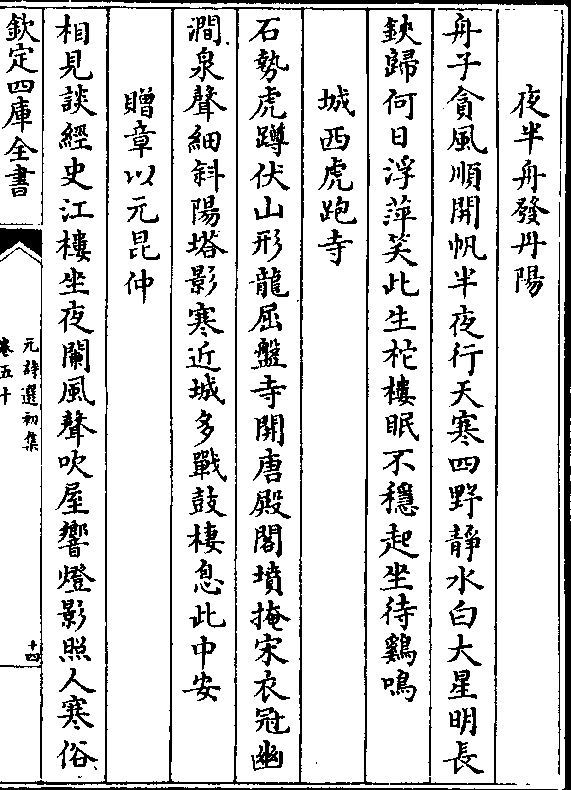 夜半舟發丹陽
舟子貪風順開帆半夜行天寒四野靜水白大星明長
鋏歸何日浮萍笑此生柁樓眠不穩起坐待鷄鳴
城西虎跑寺
石勢虎蹲伏山形龍屈盤寺開唐殿閣墳掩宋衣冠幽
澗泉聲細斜陽塔影寒近城多戰鼓棲息此中安
贈章以元昆仲
相見談經史江樓坐夜闌風聲吹屋響燈影照人寒俗
欽定四庫全書
元詩選初集
卷五十
十四